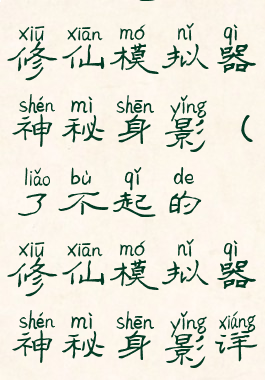 xiū xiān mó nǐ qì
修仙模拟器
shén mì shēn yǐng
神秘身影（
liǎo bù qǐ de
了不起的
xiū xiān mó nǐ qì
修仙模拟器
shén mì shēn yǐng xiáng
神秘身影详